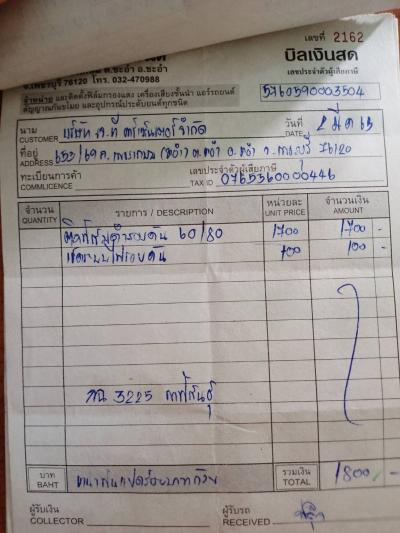 เลขที่ 2162
ต.ชะอำ อ.ชะอำ
จ.เพชรบุรี 76120 โทร. 032-470988
บิลเงินสด
เลขประจำตัวผู้เสียภาษี
จำหน่าย และติดตั้งฟิล์มกรองแสง เครื่องเสียงชั้นนำ แอร์รถยนต์
สัญญาณกันขโมย และอุปกรณ์ประดับยนต์ทุกชนิด
5760590003504
นาม
CUSTOMER บริษัท
วันที่
DATE 2 มีค 63
ที่อยู่
ADDRESS 653/69 ถ. อ.ชะอำ จ.เพชรบุรี 76120
ทะเบียนการค้า
COMMLICENCE
เลขประจำตัวผู้เสียภาษี
TAX ID 0765560000446
จำนวน
QUANTITY
รายการ / DESCRIPTION
หน่วยละ
UNIT PRICE
จำนวนเงิน
AMOUNT
ติดฟิล์ม รอบคัน 60/80 1700 1700 -
รอบคัน 100 100 -
3225
บาท
BAHT หนึ่งพันแปดร้อยบาทถ้วน
รวมเงิน
TOTAL 1800 -
ผู้รับเงิน
COLLECTOR
ผู้รับรถ
RECEIVED